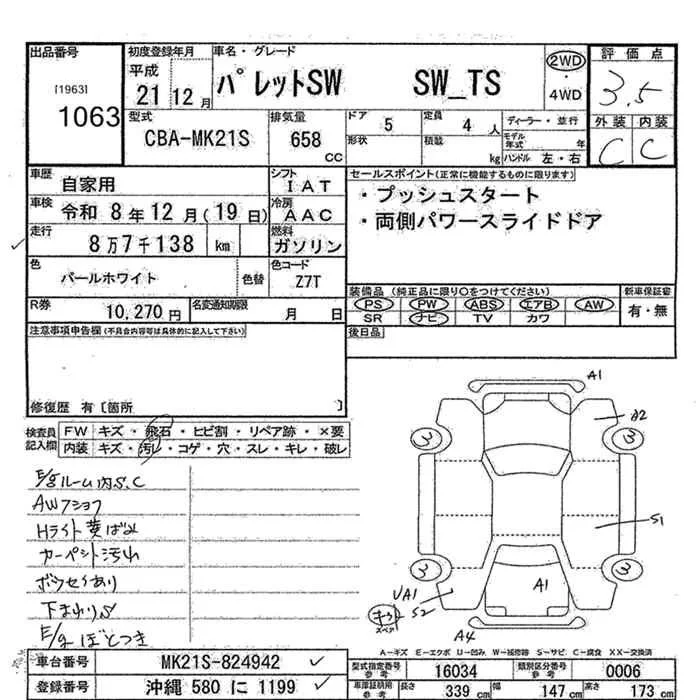 出品番号
[1963]
1063
初度登録年月
平成
21 12 月
車名・グレード
パレットSW SW_TS
2WD
・
4WD
評価点
3.5
外装 内装
C C
型式
CBA-MK21S
排気量
658 CC
ドア 5
定員 4 人
形状
積載 kg
ディーラー・並行
モデル年式 年
ハンドル 左・右
車歴 自家用
シフト IAT
車検 令和 8年 12月(19日)
冷房 AAC
走行 8万7千138 km
燃料 ガソリン
色 パールホワイト 色替
色コード Z7T
R券 10,270 円
名変通知期限 月 日
セールスポイント(正常に機能するものに限ります)
・プッシュスタート
・両側パワースライドドア
装備品 (純正品に限り○をつけてください)
PS PW ABS エアB AW
SR ナビ TV カワ
新車保証書
有・無
後日品
注意事項申告欄(不具合内容等は具体的に記入して下さい)
修復歴 有〔箇所 〕
検査員記入欄
FW キズ・飛石・ヒビ割・リペア跡・×要
内装 キズ・汚レ・コゲ・穴・スレ・キレ・破レ
E/gルーム内S.C
AWフショク
Hライト黄ばみ
カーペット汚れ
ボウセイあり
下まわりS
A1
A2
3 3
S1
3 3
UA1
S2
A1
A4
A-キズ E-エクボ U-凹み W-補修跡 S-サビ C-腐食 XX-交換済
車台番号 MK21S-824942
登録番号 沖縄 580 に 1199
型式指定番号 参考 16034
類別区分番号 参考 0006
車庫証明用 参考 長さ 339 cm 幅 147 cm 高さ 173 cm